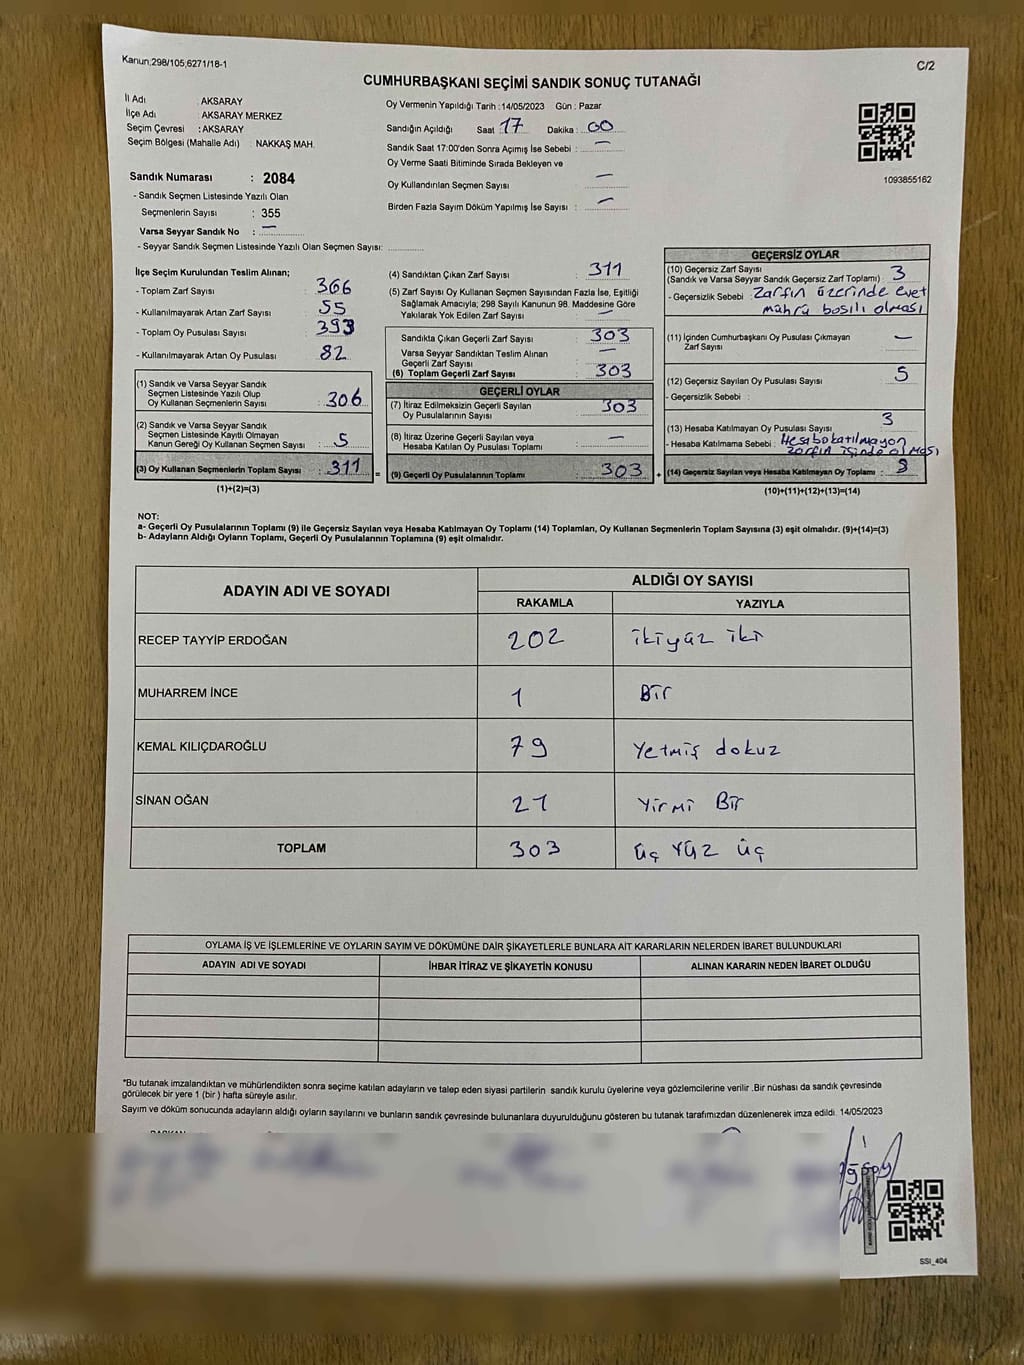 Kanun;298/105;6271/18-1
C/2
CUMHURBAŞKANI SEÇİMİ SANDIK SONUÇ TUTANAĞI
İl Adı : AKSARAY
İlçe Adı : AKSARAY MERKEZ
Seçim Çevresi : AKSARAY
Seçim Bölgesi (Mahalle Adı) : NAKKAŞ MAH.
Sandık Numarası : 2084
- Sandık Seçmen Listesinde Yazılı Olan
Seçmenlerin Sayısı : 355
Varsa Seyyar Sandık No : —
- Seyyar Sandık Seçmen Listesinde Yazılı Olan Seçmen Sayısı:
Oy Vermenin Yapıldığı Tarih :14/05/2023 Gün : Pazar
Sandığın Açıldığı Saat 17 Dakika : 00
Sandık Saat 17:00'den Sonra Açımış İse Sebebi : —
Oy Verme Saati Bitiminde Sırada Bekleyen ve
Oy Kullandırılan Seçmen Sayısı —
Birden Fazla Sayım Döküm Yapılmış İse Sayısı : —
1093855162
İlçe Seçim Kurulundan Teslim Alınan;
- Toplam Zarf Sayısı : 366
- Kullanılmayarak Artan Zarf Sayısı : 55
- Toplam Oy Pusulası Sayısı : 393
- Kullanılmayarak Artan Oy Pusulası : 82
(1) Sandık ve Varsa Seyyar Sandık
Seçmen Listesinde Yazılı Olup
Oy Kullanan Seçmenlerin Sayısı : 306
(2) Sandık ve Varsa Seyyar Sandık
Seçmen Listesinde Kayıtlı Olmayan
Kanun Gereği Oy Kullanan Seçmen Sayısı : 5
(3) Oy Kullanan Seçmenlerin Toplam Sayısı : 311 =
(1)+(2)=(3)
(4) Sandıktan Çıkan Zarf Sayısı : 311
(5) Zarf Sayısı Oy Kullanan Seçmen Sayısından Fazla İse, Eşitliği
Sağlamak Amacıyla; 298 Sayılı Kanunun 98. Maddesine Göre
Yakılarak Yok Edilen Zarf Sayısı : —
Sandıkta Çıkan Geçerli Zarf Sayısı : 303
Varsa Seyyar Sandıktan Teslim Alınan
Geçerli Zarf Sayısı : —
(6) Toplam Geçerli Zarf Sayısı : 303
GEÇERLİ OYLAR
(7) İtiraz Edilmeksizin Geçerli Sayılan
Oy Pusulalarının Sayısı : 303
(8) İtiraz Üzerine Geçerli Sayılan veya
Hesaba Katılan Oy Pusulası Toplamı : —
(9) Geçerli Oy Pusulalarının Toplamı : 303 +
GEÇERSİZ OYLAR
(10) Geçersiz Zarf Sayısı
(Sandık ve Varsa Seyyar Sandık Geçersiz Zarf Toplamı) : 3
- Geçersizlik Sebebi : Zarfın üzerinde evet
mührü basılı olması
(11) İçinden Cumhurbaşkanı Oy Pusulası Çıkmayan
Zarf Sayısı : —
(12) Geçersiz Sayılan Oy Pusulası Sayısı : 5
- Geçersizlik Sebebi :
(13) Hesaba Katılmayan Oy Pusulası Sayısı : 3
- Hesaba Katılmama Sebebi : Hesaba katılmayan
zarfın içinde olması
(14) Geçersiz Sayılan veya Hesaba Katılmayan Oy Toplamı : 8
(10)+(11)+(12)+(13)=(14)
NOT:
a- Geçerli Oy Pusulalarının Toplamı (9) ile Geçersiz Sayılan veya Hesaba Katılmayan Oy Toplamı (14) Toplamları, Oy Kullanan Seçmenlerin Toplam Sayısına (3) eşit olmalıdır. (9)+(14)=(3)
b- Adayların Aldığı Oyların Toplamı, Geçerli Oy Pusulalarının Toplamına (9) eşit olmalıdır.
ADAYIN ADI VE SOYADI
ALDIĞI OY SAYISI
RAKAMLA YAZIYLA
RECEP TAYYİP ERDOĞAN 202 ikiyüz iki
MUHARREM İNCE 1 Bir
KEMAL KILIÇDAROĞLU 79 Yetmiş dokuz
SİNAN OĞAN 21 Yirmi Bir
TOPLAM 303 üç Yüz üç
OYLAMA İŞ VE İŞLEMLERİNE VE OYLARIN SAYIM VE DÖKÜMÜNE DAİR ŞİKAYETLERLE BUNLARA AİT KARARLARIN NELERDEN İBARET BULUNDUKLARI
ADAYIN ADI VE SOYADI İHBAR İTİRAZ VE ŞİKAYETİN KONUSU ALINAN KARARIN NEDEN İBARET OLDUĞU
*Bu tutanak imzalandıktan ve mühürlendikten sonra seçime katılan adayların ve talep eden siyasi partilerin sandık kurulu üyelerine veya gözlemcilerine verilir .Bir nüshası da sandık çevresinde
görülecek bir yere 1 (bir ) hafta süreyle asılır.
Sayım ve döküm sonucunda adayların aldığı oyların sayılarını ve bunların sandık çevresinde bulunanlara duyurulduğunu gösteren bu tutanak tarafımızdan düzenlenerek imza edildi. 14/05/2023
SSI_404